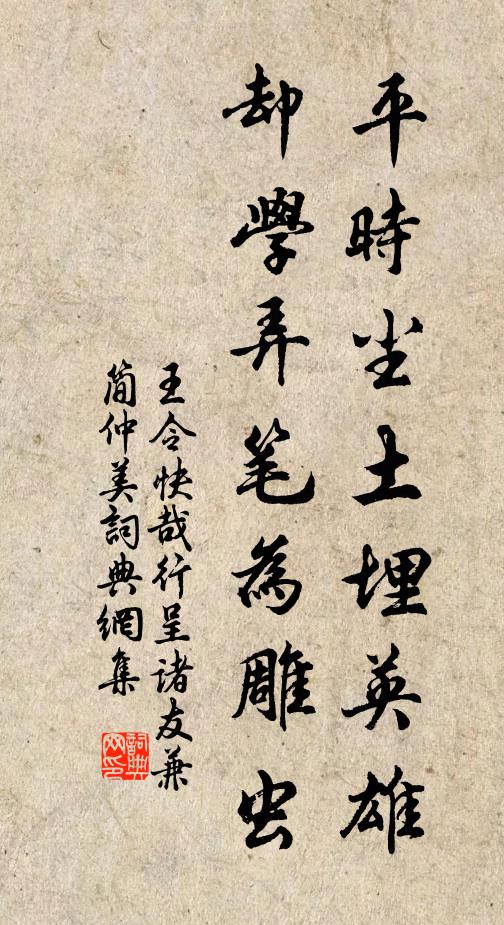 平時尘土埋英雄
却學弄笔為雕虫
王令快哉行呈諸友兼
簡仲美詞典網集
詞典网印